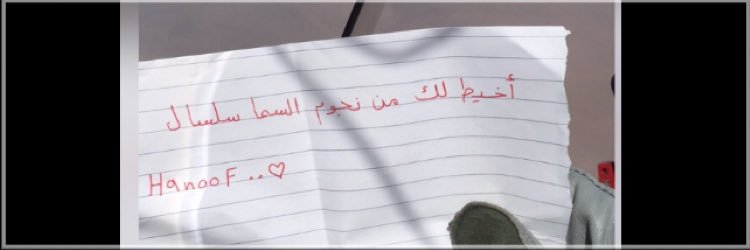 أخيط لك من نجوم السما سلسال
Hanoof..♡